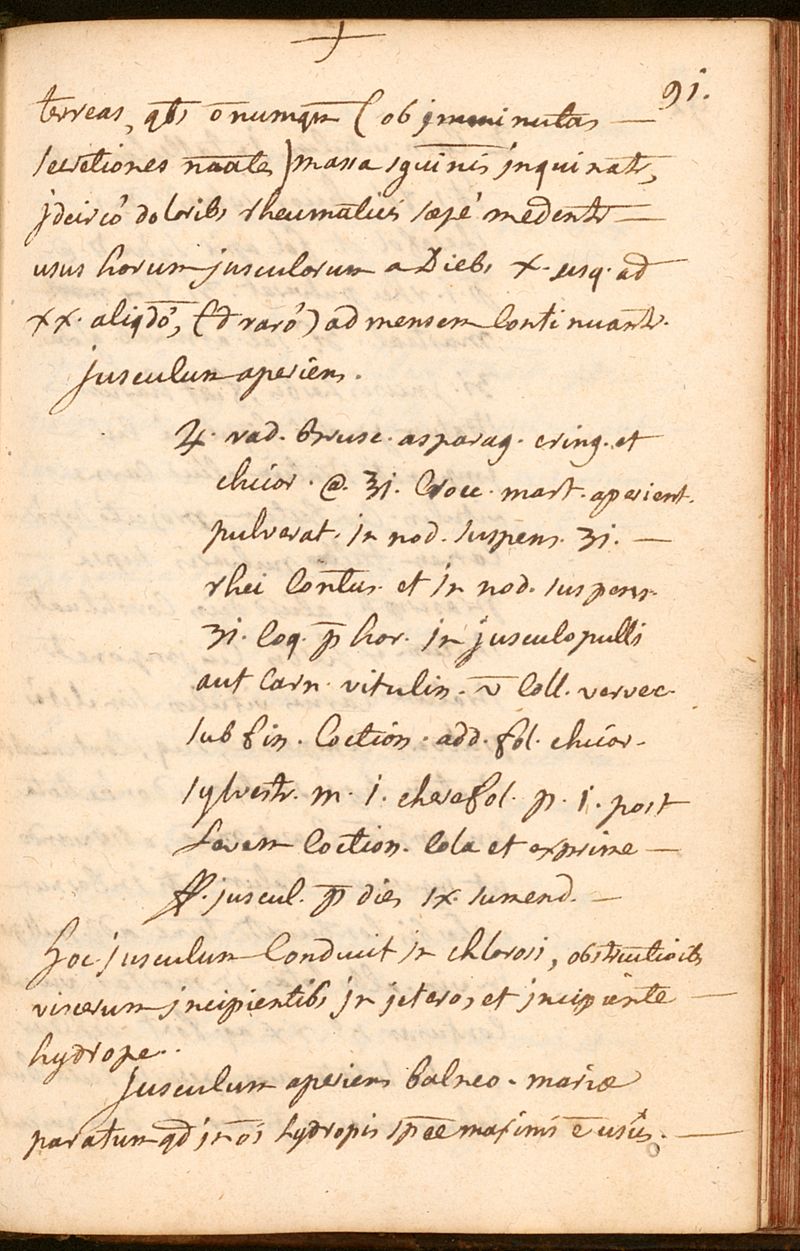 91.
terreas, qbs nonnumqm (ob imminutas
secretiones nāāles) massa sguinis inquinatr,
jdcircó doloribs rheumaticis sæpé medentr
usus horum jusculorum a Diebs x. usq. ad
xx. aliqdó, (& raró) ad mensem Continuantr.
Jusculum aperiens.
♃. rad. Brusc. asparag. ering. et
chicor. @. ʒj. Croc. mart. aperient.
pulverat. in nod. suspens. ʒi.
rhei Contus. et in nod. suspens.
ʒi. Coq. p̄ hor. in jusculo pulli
aut Carn. vitulin. v̄ Coll. vervec.
sub fin. Coction. add. fol. chicor.
sylvestr. m. i. cherefol. p. i. post
Levem Coction. Cola et exprime
ff. juscul. p̄ dies ix. sumend.
hoc jusculum Conducit in chlorosi, obstructioibs
viscerum jncipientibs jn jcteros et jncipiente
hydrope.
Jusculum aperiens balneo-mariæ
paratum qd jn oī hydropis spēe maximis ē usus.